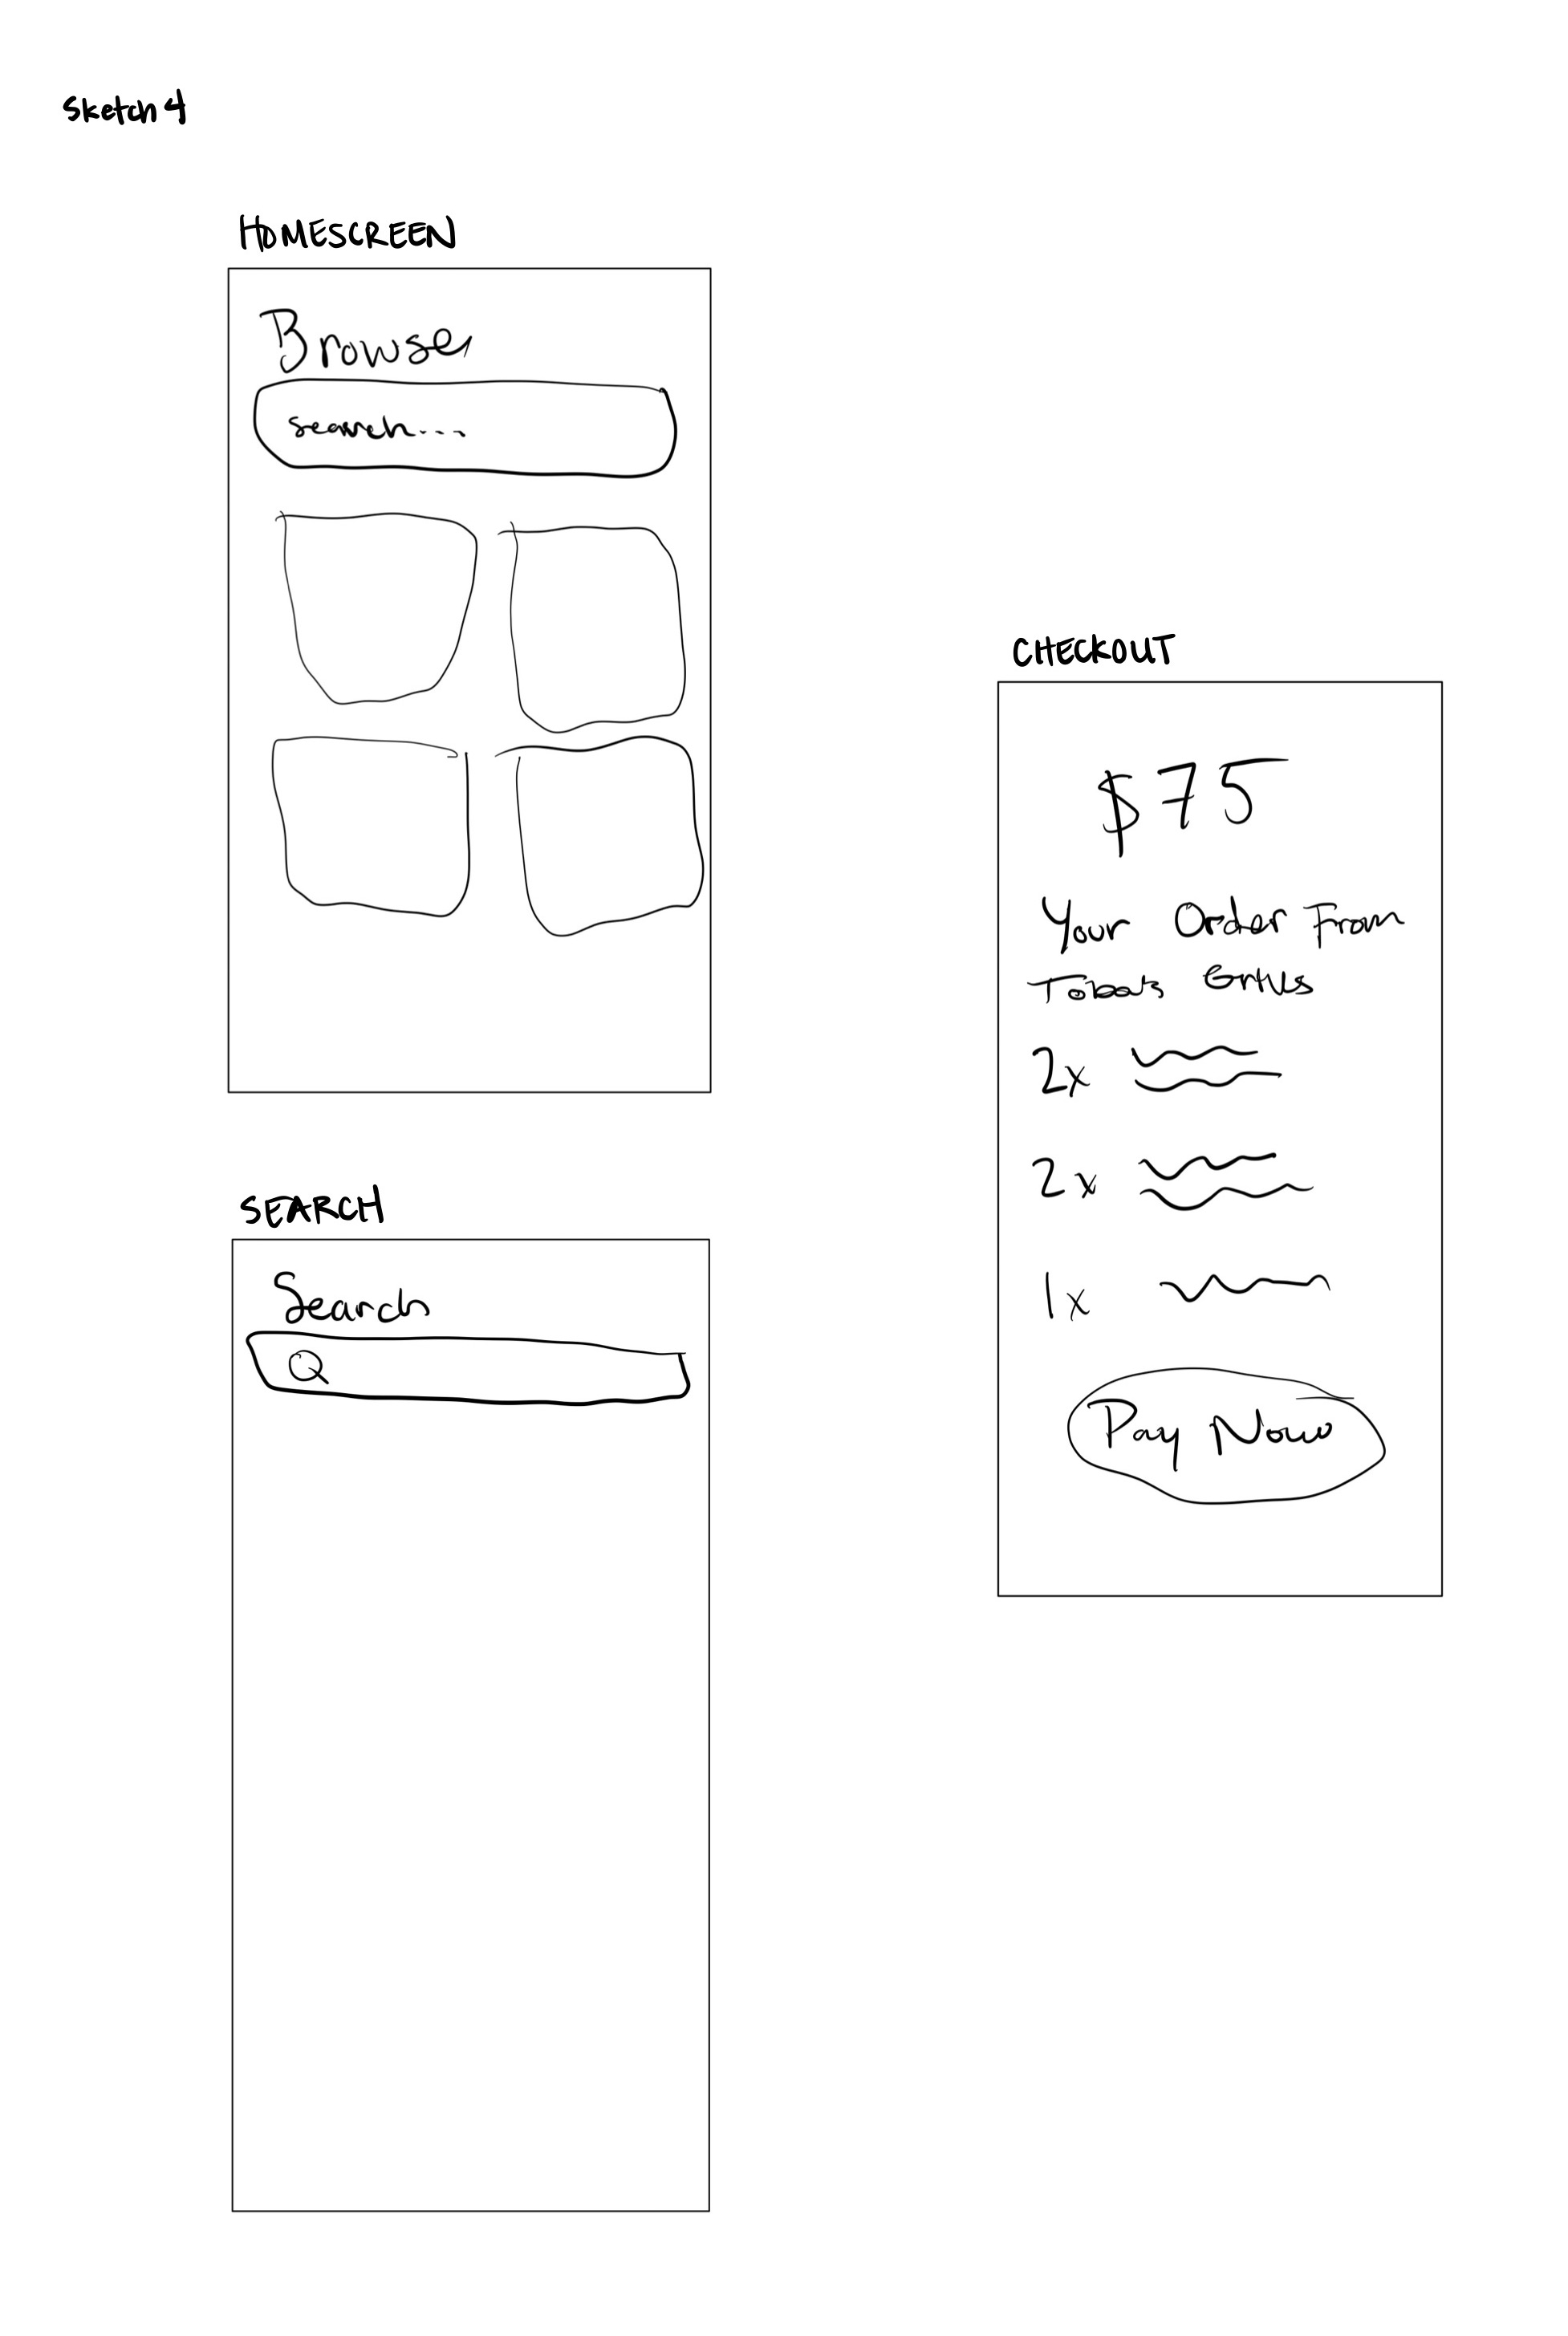 Sketch 4
HOMESCREEN
Browse
search...
SEARCH
Search
CHECKOUT
$75
Your Order From
2x
2x
1x
Pay Now